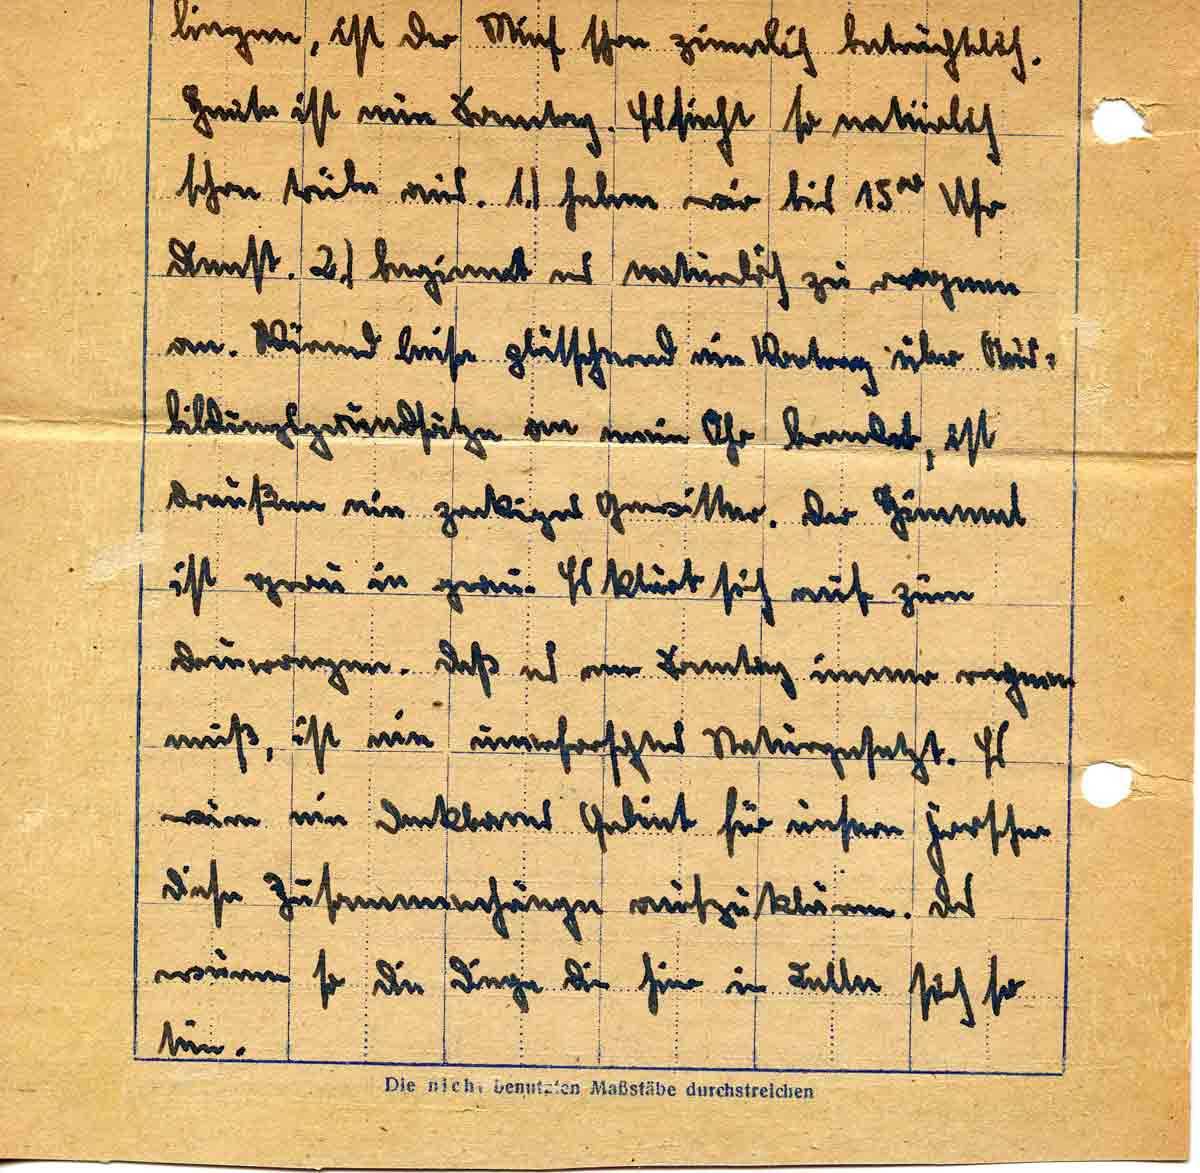 lingen, ist der Mief schon ziemlich beträchtlich.
Heute ist nun Sonntag. Es sieht so natürlich
schon trübe aus. 1.) haben wir bis 15ºº Uhr
Dienst. 2.) beginnt es natürlich zu regnen
an. Während leise plätschernd ein Vortrag über Aus-
bildungsgrundsätze an mein Ohr brandet, ist
draußen ein zackiges Gewitter. Der Himmel
ist grau in grau. Es klärt sich auf zum
Dauerregen. Daß es am Sonntag immer regnen
muß, ist ein unerforschtes Naturgesetzt. Es
wäre ein dankbares Gebiet für unsere Forscher
diese Zusammenhänge aufzuklären. Das
wären so die Dinge die hier in Celle sich so
tun.
Die nicht benutzten Maßstäbe durchstreichen